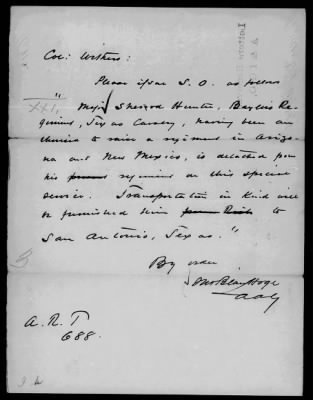 Col: Withers:
Please issue S. O. as follows
XXI, "Major Sherod Hunter, Baylor's Re-
giment, Texas Cavalry, having been au-
thorized to raise a regiment in Arizo-
na and New Mexico, is detached from
his regiment on this special
service. Transportation in kind will
be furnished him to
San Antonio, Texas."
By order
Jno Blair Hoge
AAG
A. R. T
688.